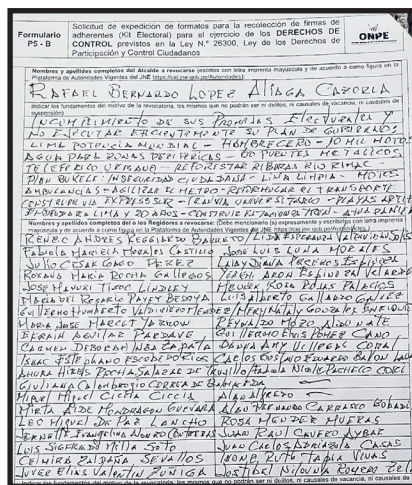 Formulario
P5 - B
Solicitud de expedición de formatos para la recolección de firmas de
adherentes (Kit Electoral) para el ejercicio de los DERECHOS DE
CONTROL previstos en la Ley N.° 26300, Ley de los Derechos de
Participación y Control Ciudadanos
ONPE
Nombres y apellidos completos del Alcalde a revocarse (escritos con letra imprenta mayúscula y de acuerdo a como figura en la
Plataforma de Autoridades Vigentes del JNE
RAFAEL BERNARDO LOPEZ ALIAGA CAZORLA
Indicar los fundamentos del motivo de la revocatoria, los mismos que no podrán ser ni delitos, ni causales de vacancia, ni causales de
suspensión)
INCUMPLIMIENTO DE SUS PROMESAS ELECTORALES Y
NO EJECUTAR EFICIENTEMENTE SU PLAN DE GOBIERNO
LIMA POTENCIA MUNDIAL - HAMBRE CERO - 10 MIL MOTOS
AGUA PARA ZONAS PERIFERICAS - 60 PUENTES METALICOS
TELEFERICO URBANO - REFORESTAR RIBERAS RIO RIMAC -
PLAN BUKELE INSEGURIDAD CIUDADANA - LIMA LIMPIA - MOTOS
AMBULANCIAS - AGILIZAR EL METRO - REFORMULAR EL TRANSPORTE
CONSTRUIR VIA EXPRESA SUR - TRANVIA UNIVERSITARIO - PLAYAS
LIMA 20 AÑOS - CONSTRUIR
Nombres y apellidos completos del o los Regidores a revocarse: (Debe mencionarlo (s) expresamente y escribirlo con letra imprenta
mayúscula y de acuerdo a como figura en la Plataforma de Autoridades Vigentes del JNE
RENZO ANDRES REGGIARDO BARRETO / LIDA ESPERANZA
FABIOLA MARCELA MORALES CASTILLO JOSE LUIS LUNA MORALES
JULIO CESAR GAGO PEREZ / LADY DIANA ESPINOZA
ROSANA MARIA ROCHA GALLEGOS YERSHI ARON ESPINOZA VELARDE
JOSE MANUKI TISOC LINDLEY MEULEN ROSA ROJAS PALACIOS
MARIA DEL ROSARIO PAYET BEDOYA LUIS ALBERTO GALLARDO GALVEZ
GUILLERMO HUMBERTO VALDIVIEZO MENDEZ / MERY NATALY GONZALES ENRIQUEZ
MARIA JOSE MARCET REYNALDO MOZO ALDUNATE
EFRAIN AGUILAR PARDAVE GUILLERMO ELVIS POMEZ CANO
CARMEN DEBORAH DANITA AMY VILLEGAS
ISAAC ESTEPHANO ESCOBEDO RIOS CARLOS GUSTAVO EDUARDO
AHURA HIRIS ROCHA SALAZAR DE TRUJILLO / FABIOLA NICOLE PACHECO
GIULIANA CALAMBROGIO CORREA DE
MIGUEL MIGUEL CICCIA CICCIA ALAN ALFREDO
MIRTA AIDE MONDRAGON GUEVARA ALAN FERNANDO CARRASCO BOBADILLA
LEO MIGUEL DE PAZ LANCHO ROSA MENDER MUERAS
EVANGELINA ALFARO CONTRERAS JUAN RAUL CAVERO AYBAR
LUIS SIGFREDO MOLLA SOTO JUAN CARLOS ADRIAZOLA CASAS
CELMIRA SALDAÑA SEVALLOS LEONEL RUTH TAPIA VIVAS
JUVEZ ELIAS VALENTIN ZUÑIGA
Indicar los fundamentos del motivo de la revocatoria, los mismos que no podrán ser ni delitos, ni causales de vacancia, ni causales